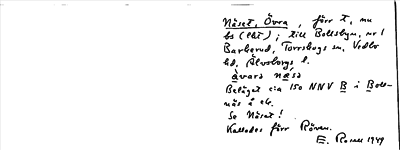 Näset, Övra, förr t, nu
bs (lht); till Bollsbyn, nr 1
Barkerud, Torrskogs sn, Vedbo
hd, Älvsborgs l.
àvara nása
Beläget c:a 150 NNV B i Boll-
näs å ek.
Se Näset!
Kallades förr Röven.
E. Rosell 1949